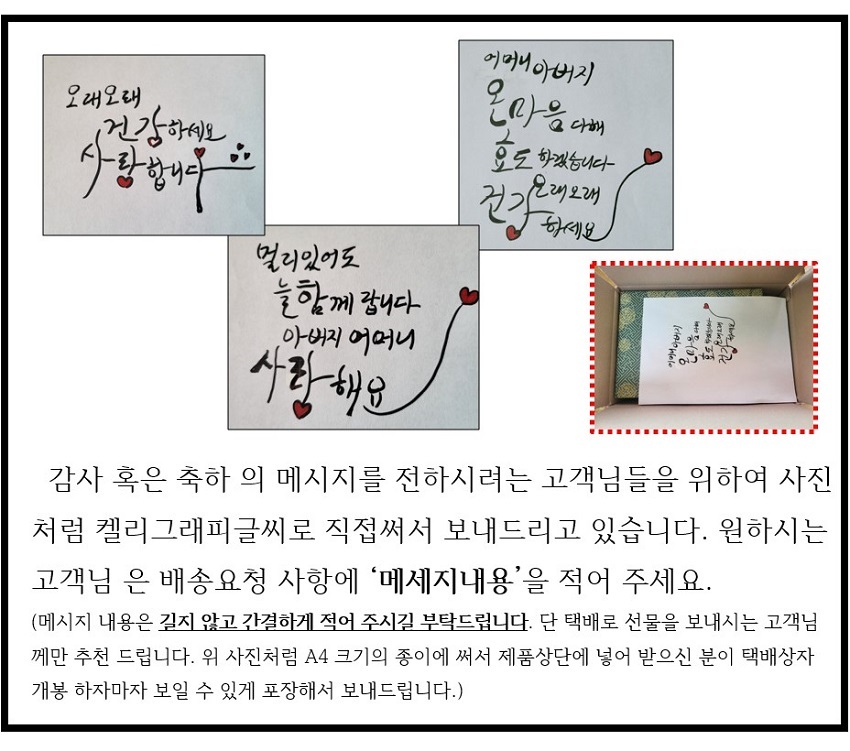 오래오래
건강하세요
사랑합니다
어머니 아버지
온마음 다해
효도 하겠습니다
건강 오래오래
하세요
멀리있어도
늘 함께 랍니다
아버지 어머니
사랑해요
어머니 아버지
온마음 다해
효도 하겠습니다
건강 오래오래
하세요
감사 혹은 축하 의 메시지를 전하시려는 고객님들을 위하여 사진
처럼 켈리그래피글씨로 직접써서 보내드리고 있습니다. 원하시는
고객님 은 배송요청 사항에 ‘메세지내용’을 적어 주세요.
(메시지 내용은 길지 않고 간결하게 적어 주시길 부탁드립니다. 단 택배로 선물을 보내시는 고객님
께만 추천 드립니다. 위 사진처럼 A4 크기의 종이에 써서 제품상단에 넣어 받으신 분이 택배상자
개봉 하자마자 보일 수 있게 포장해서 보내드립니다.)